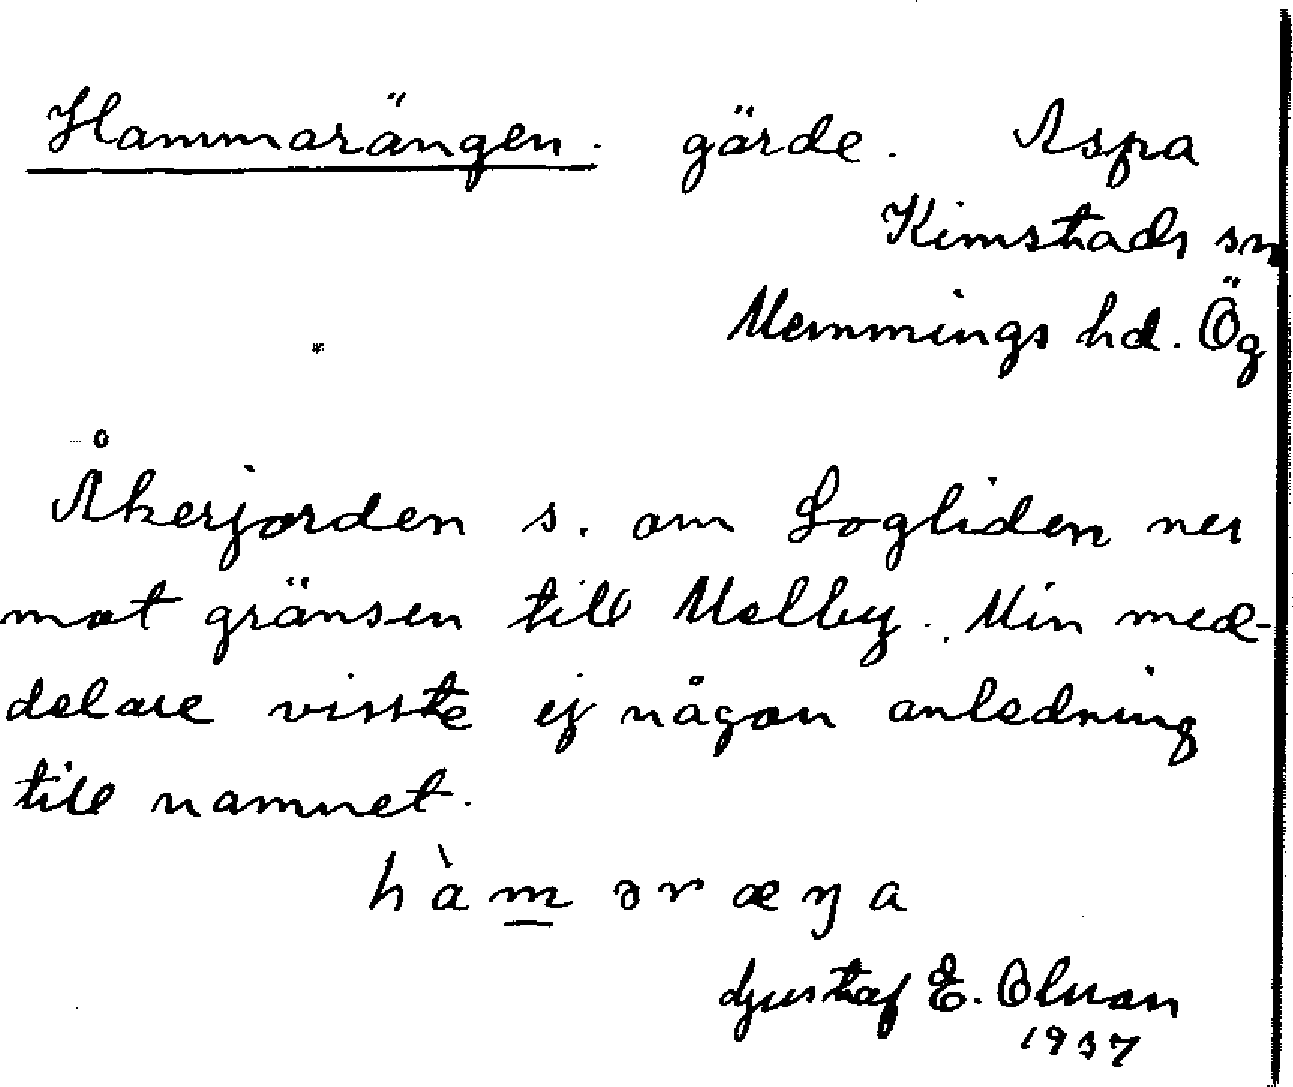 Hammarängen. gärde. Aspa
Kimstads sn
Memmings hd. Ög
Åkerjorden s. om Logliden ner
mot gränsen till Melby. Min med-
delare visste ej någon anledning
till namnet.
hàməræŋa
Gustaf E. Olsson
1937